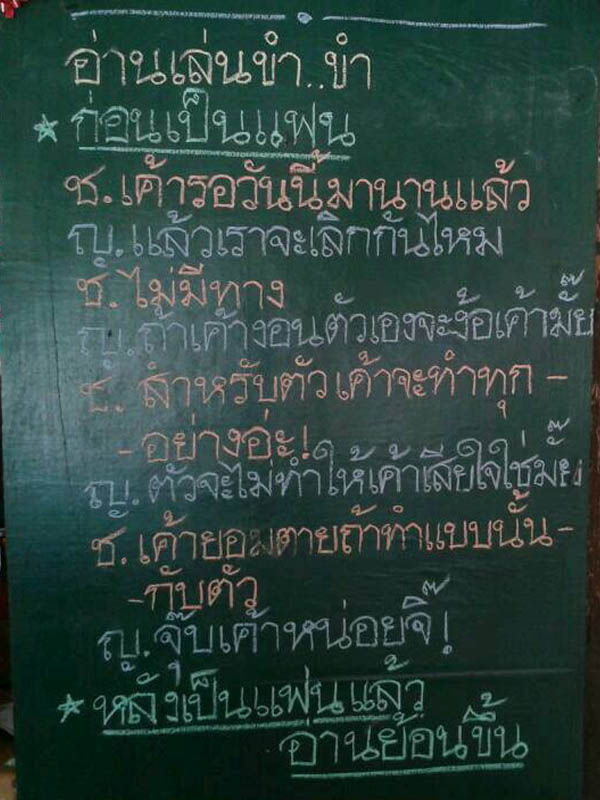 อ่านเล่นขำ..ขำ
* ก่อนเป็นแฟน
ช.เค้ารอวันนี้มานานแล้ว
ญ.แล้วเราจะเลิกกันไหม
ช.ไม่มีทาง
ญ.ถ้าเค้างอนตัวเองจะง้อเค้ามั๊ย
ช. สำหรับตัวเค้าจะทำทุก -
- อย่างอ่ะ!
ญ.ตัวจะไม่ทำให้เค้าเสียใจใช่มั๊ย
ช.เค้ายอมตายถ้าทำแบบนั้น -
-กับตัว
ญ.จุ๊บเค้าหน่อยจิ๊!
* หลังเป็นแฟนแล้ว
อ่านย้อนขึ้น